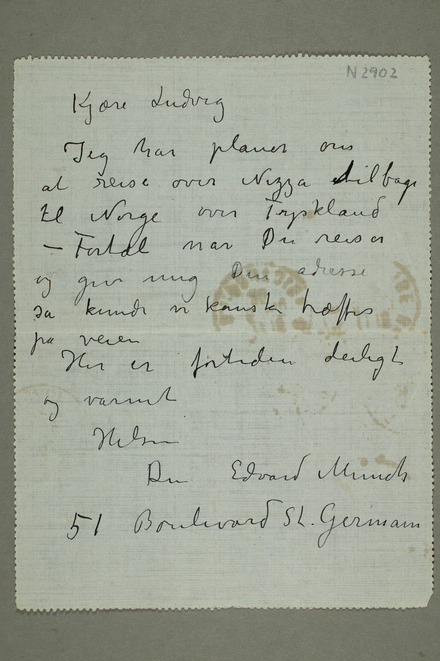 N 2902
Kjære Ludvig
Jeg har planer om
at reise over Nizza tilbage
til Norge over Tyskland
– Fortæl når Du reiser
og giv mig Din adresse
så kunde vi kanske træffes
på veien
Her er fortiden deiligt
og varmt
Hilsen
Din Edvard Munch
51 Boulevard St. Germain